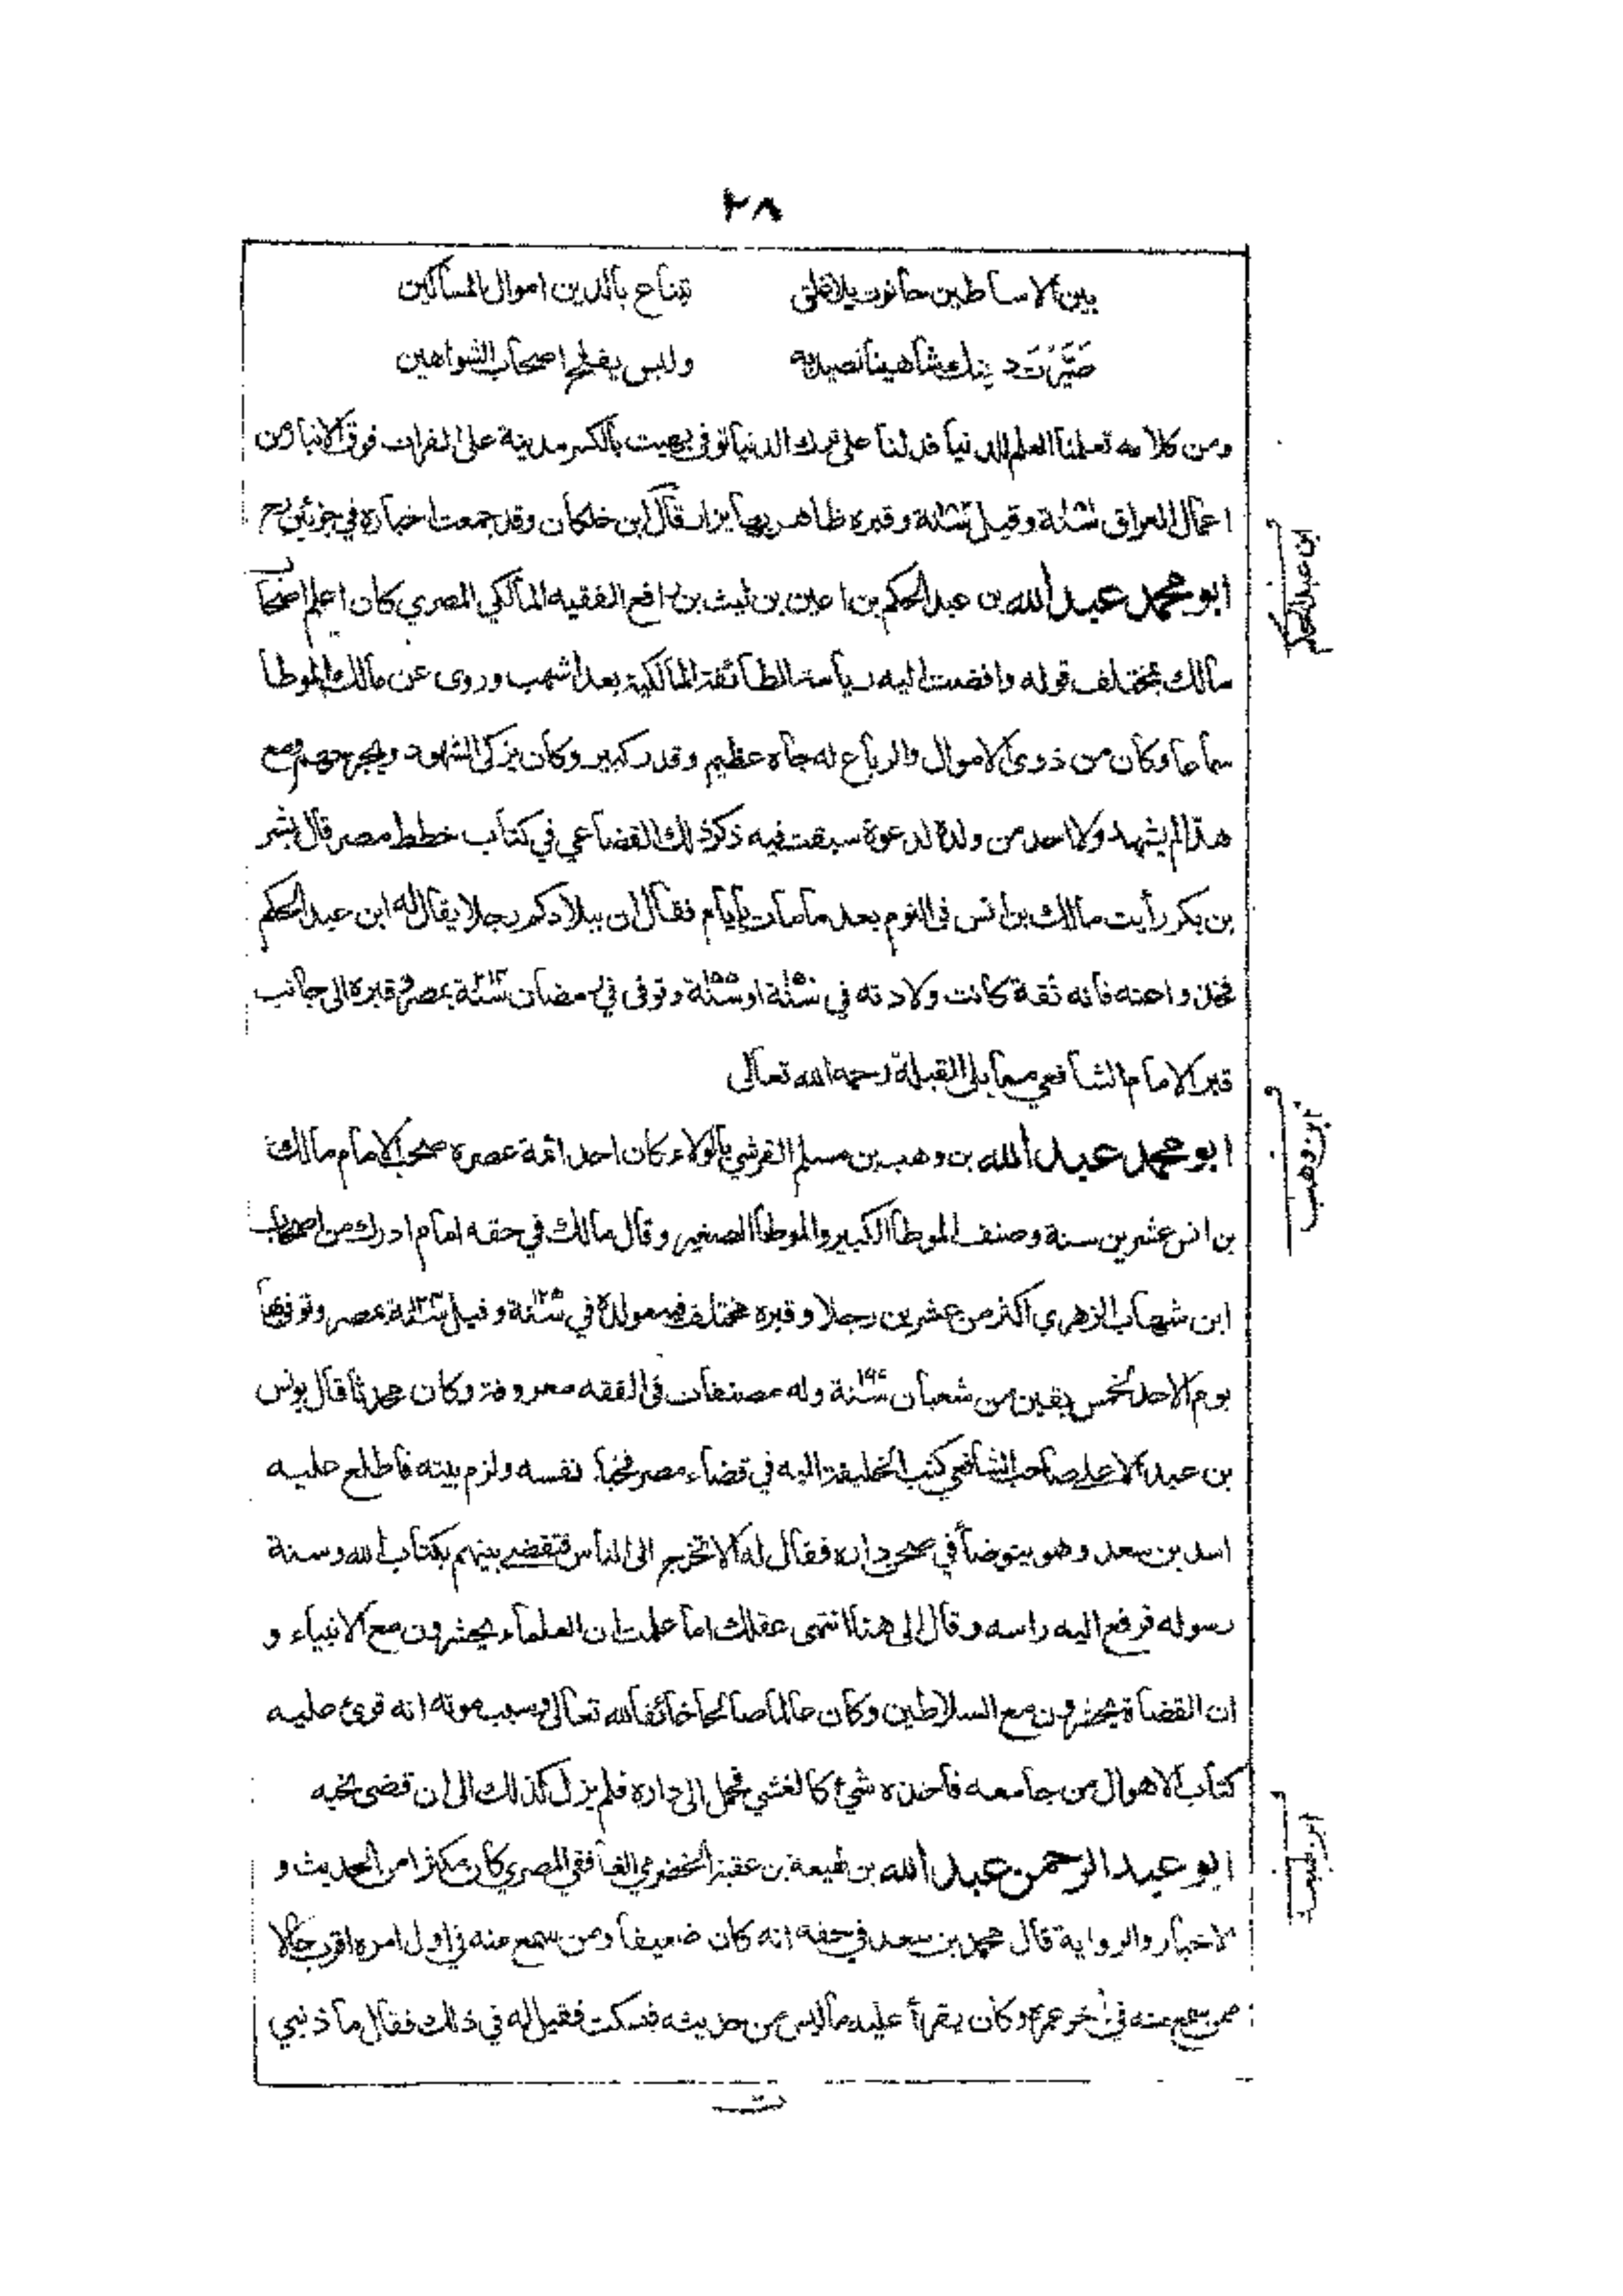 ٢٨
بين الاساطين حانوت بلا غلق تبتاع بالدين اموال المساكين
صَيَّرْتَ دينك شاهينا تصيد به وليس يفلح اصحاب الشواهين
ومن كلامه تعلمنا العلم للدنيا فدلنا على ترك الدنيا توفي بهيت بالكسر مدينة على الفرات فوق الانبار من
اعمال العراق سنة وقيل سنة وقبره ظاهر بها يزار قال ابن خلكان وقد جمعت اخباره في جزئين
ابو محمد عبد الله بن عبد الحكم بن اعين بن ليث بن رافع الفقيه المالكي المصري كان اعلم اصحاب
مالك بمختلف قوله وافضت اليه رياسة الطائفة المالكية بعد اشهب وروى عن مالك الموطا
سماعا وكان من ذوى الاموال والرباع له جاه عظيم وقدر كبير وكان يزكى الشهود ويجرحهم ومع
هذا لم يشهد ولا احد من ولده لدعوة سبقت فيه ذكر ذلك القضاعي في كتاب خطط مصر قال بشر
بن بكر رأيت مالك بن انس في النوم بعد ما مات بايام فقال ان ببلادكم رجلا يقال له ابن عبد الحكم
فخذوا عنه فانه ثقة كانت ولادته في سنة ١٥٠ او سنة ١٥٥ وتوفى في رمضان سنة ٢١٤ بمصر وقبره الى جانب
قبر الامام الشافعي مما يلى القبلة رحمه الله تعالى
ابو محمد عبد الله بن وهب بن مسلم القرشي بالولاء كان احد ائمة عصره صحب الامام مالك
بن انس عشرين سنة وصنف الموطأ الكبير والموطأ الصغير وقال مالك في حقه امام ادرك من اصحاب
ابن شهاب الزهري اكثر من عشرين رجلا وقبره مختلف فيه مولده في سنة ١٢٥ وقيل سنة ١٢٤ بمصر وتوفي بها
يوم الاحد لخمس بقين من شعبان سنة ١٩٧ وله مصنفات في الفقه معروفة وكان محدثا قال يونس
بن عبد الاعلى صاحب الشافعي كتب الخليفة اليه في قضاء مصر فخبأ نفسه ولزم بيته فاطلع عليه
اسد بن سعد وهو يتوضأ في صحن داره فقال له الا تخرج الى الناس فتقضى بينهم بكتاب الله وسنة
رسوله فرفع اليه راسه وقال الى هنا انتهى عقلك اما علمت ان العلماء يحشرون مع الانبياء و
ان القضاة يحشرون مع السلاطين وكان عالما صالحا خائفا لله تعالى وسبب موته انه قرئ عليه
كتاب الاهوال من جامعه فاخذه شئ كالغشي فحمل الى داره فلم يزل كذلك الى ان قضى نحبه
ابو عبد الرحمن عبد الله بن لهيعة بن عقبة الحضرمي الغافقي المصري كان مكثرا من الحديث و
الاخبار والرواية قال محمد بن سعد في حقه انه كان ضعيفا ومن سمع منه في اول امره اقرب حالا
ممن سمع منه في آخر عمره وكان يقرأ عليه ما ليس من حديثه فسكت فقيل له في ذلك فقال ما ذنبي
ابن عبد الحكم
ابن وهب
ابن لهيعة